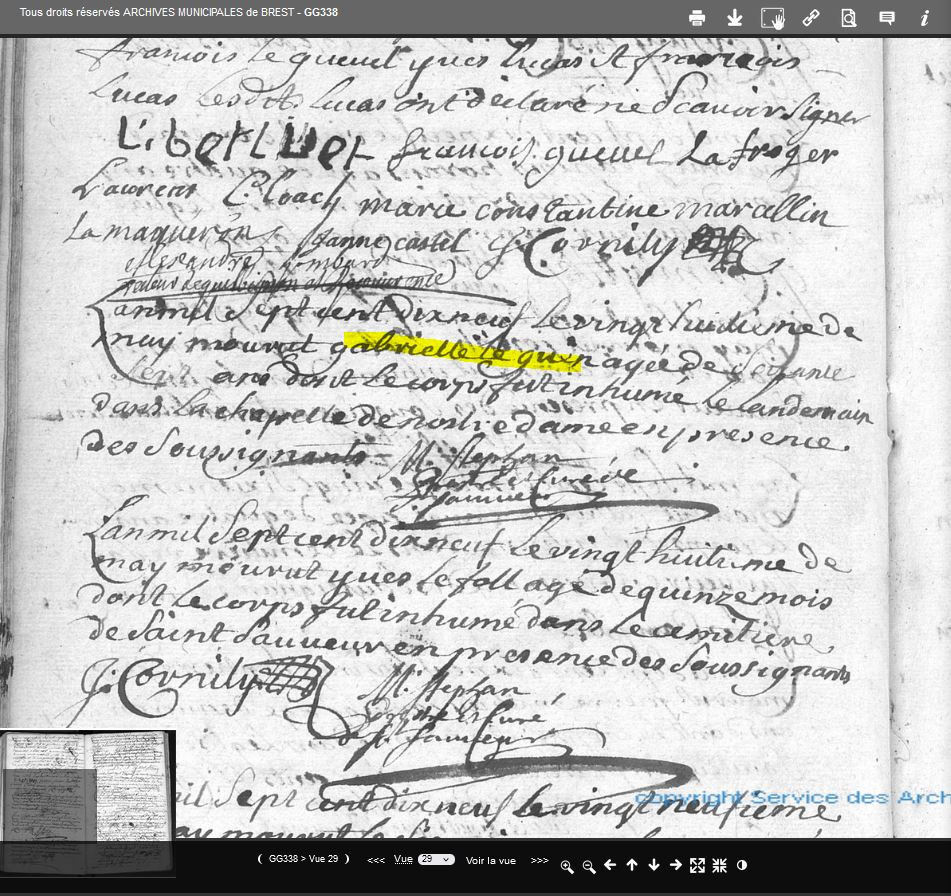 Tous droits réservés ARCHIVES MUNICIPALES de BREST - GG338
francois le gueuel yves lucas et francois
lucas lesdits lucas ont declaré ne scavoir signer
francois gueuel La froger
marie constantine marallin
Janne castel J. Cornily
L'an mil sept cent dix neuf le vingt huitieme de
may mourut gabrielle le guen agée de
sept ans dont le corps fut inhumé le landemain
dans la chapelle de nostre dame en presence
des soussignants M. Stephan
Curé de
st sauveur
L'an mil sept cent dix neuf le vingt huitieme de
may mourut yves le foll agé de quinze mois
dont le corps fut inhumé dans le cemitiere
de saint sauveur en presence des soussignants
J. Cornily M. Stephan
Curé
de st sauveur
mil sept cent dix neuf le vingt neufieme
may mourut
copyright Service des Arch
GG338 > Vue 29
<<< Vue 29 Voir la vue >>>